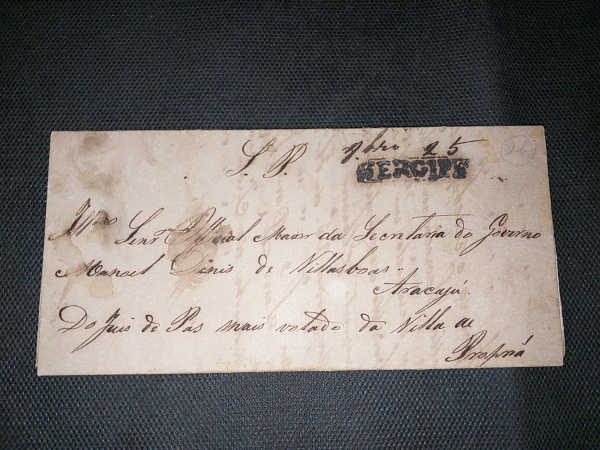 S. P. 9bro 25
SERGIPE
Illmo Senr Official Maior da Secretaria do Governo
Manoel Dinis de Villasboas.
Aracajú.
Do Juis de Pas mais votado da Villa de
Propriá